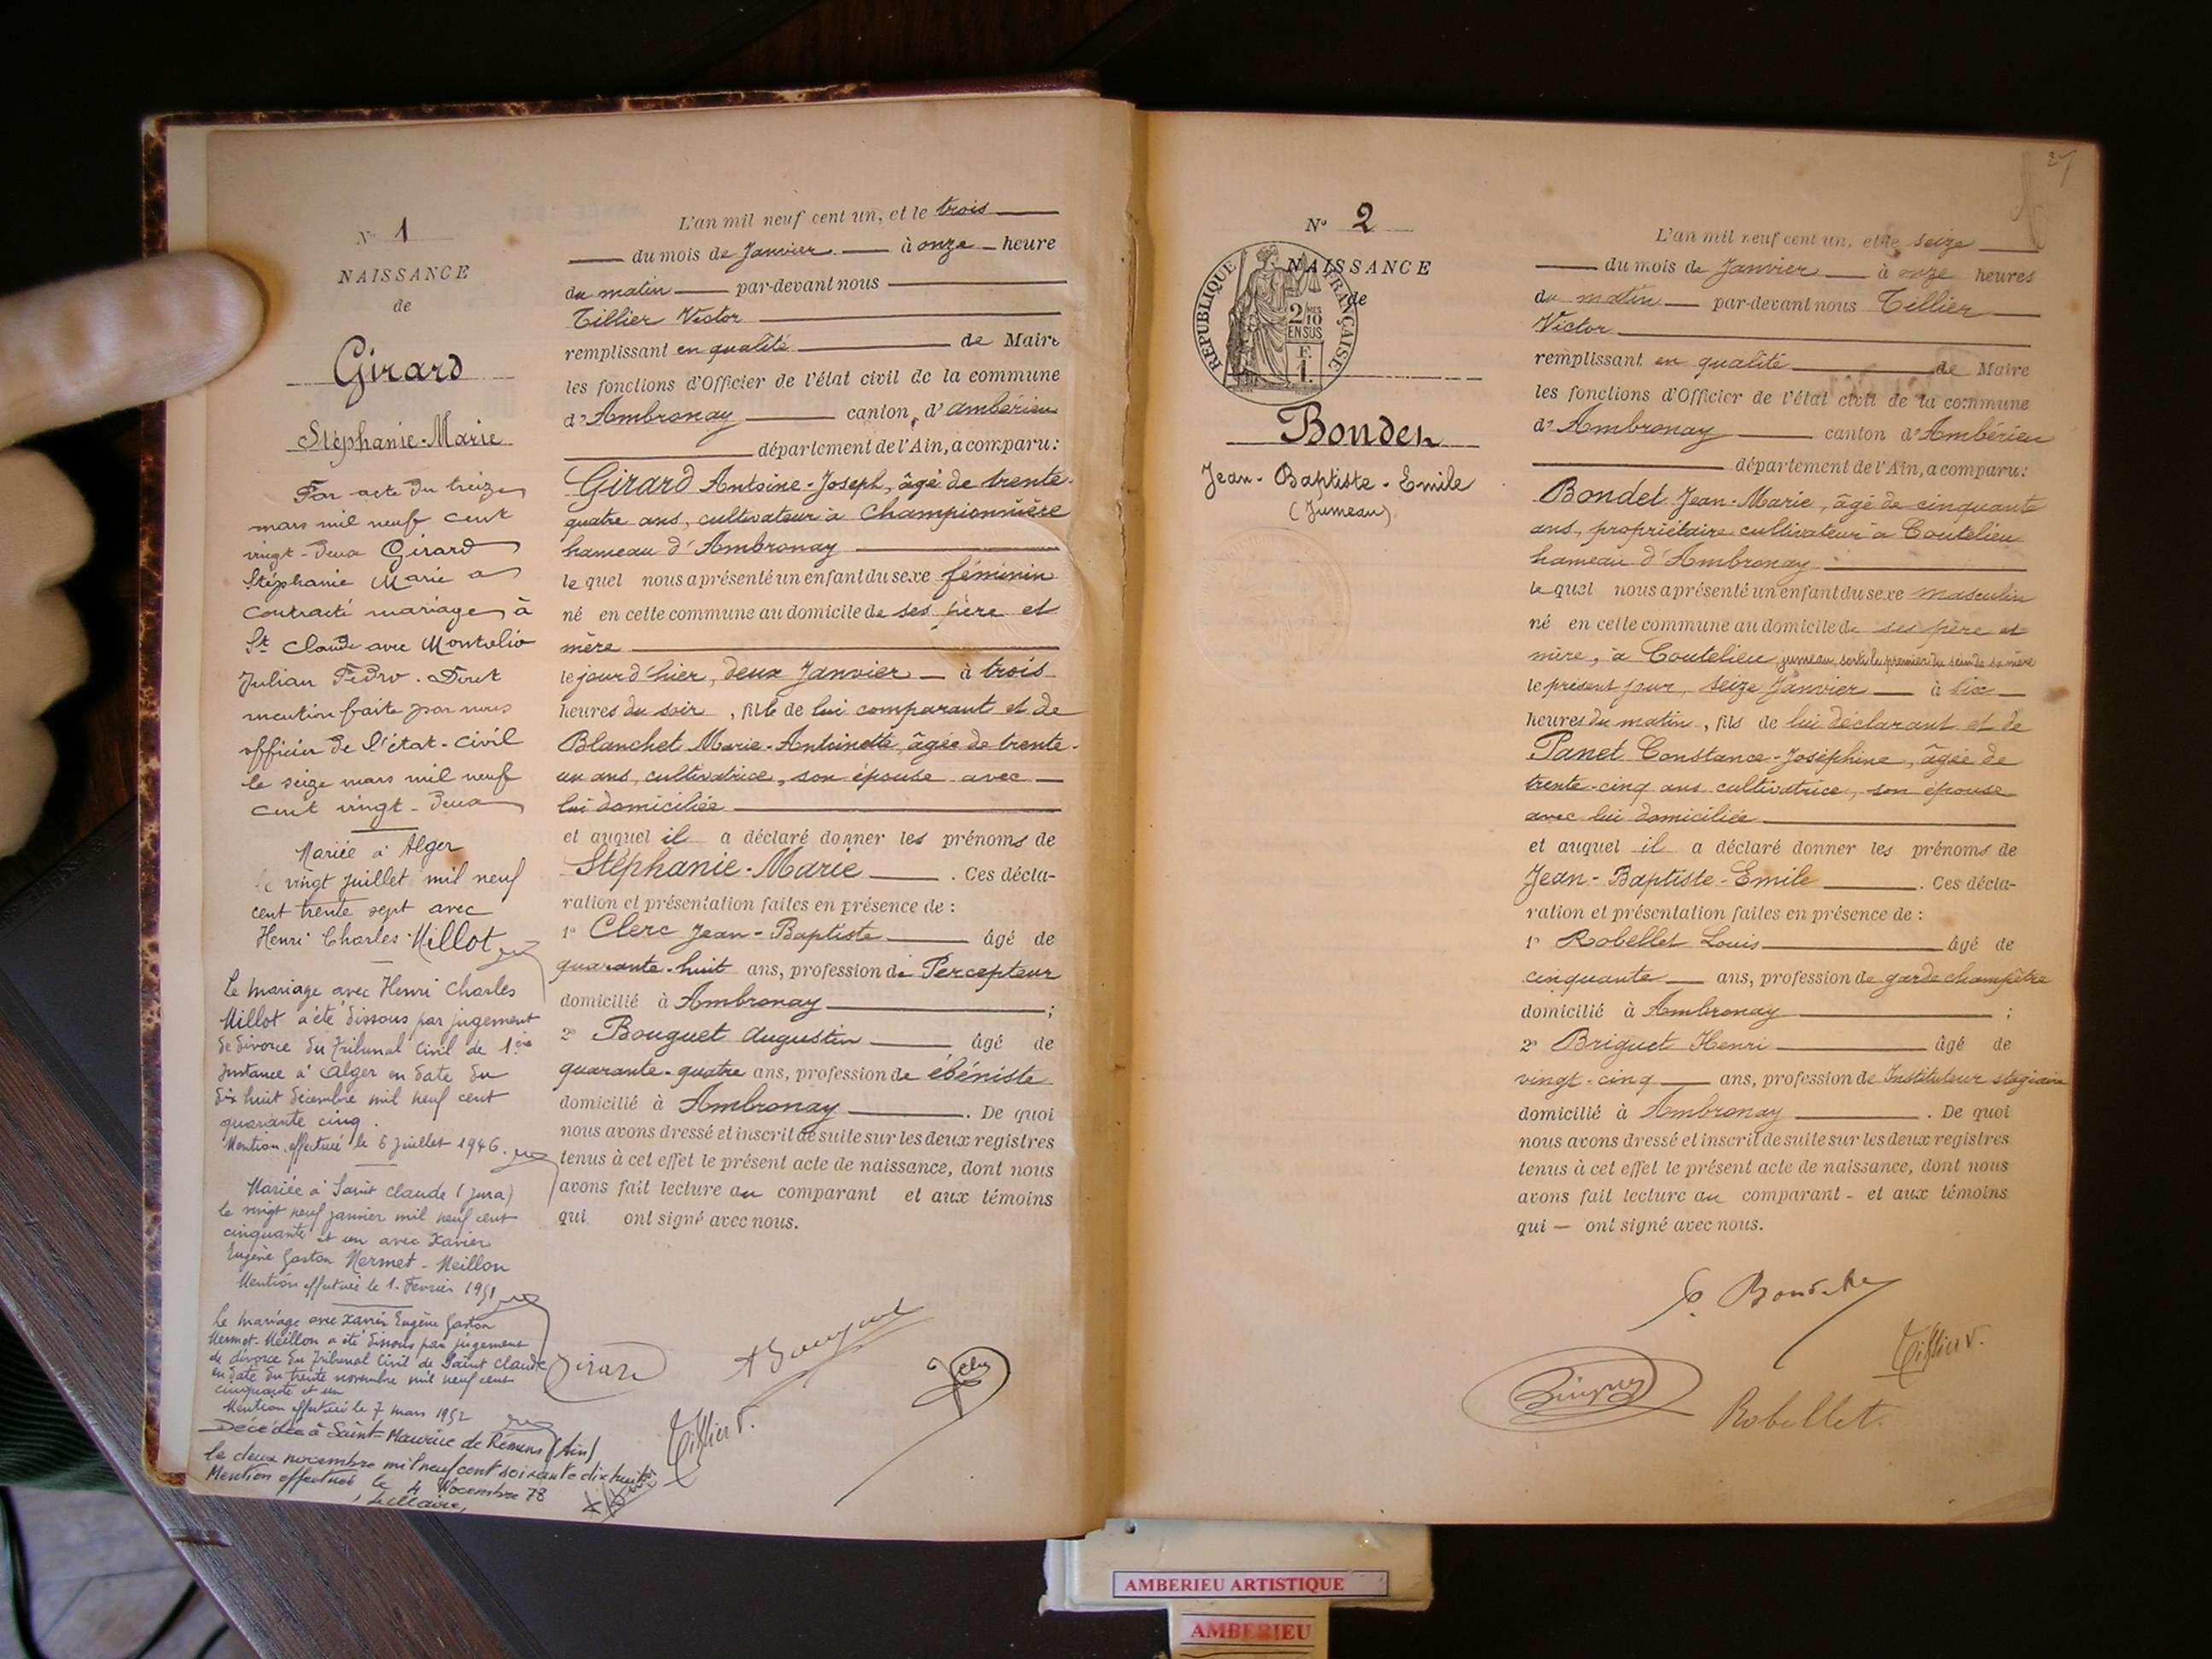 N° 1
NAISSANCE
de
Girard
Stéphanie-Marie
Par acte du treize
mars mil neuf cent
vingt-deux Girard
Stéphanie Marie a
contracté mariage à
St Claude avec Montolio
Julian Pedro. Dont
mention faite par nous
officier de l'état-civil
le seize mars mil neuf
cent vingt-deux
Mariée à Alger
le vingt juillet mil neuf
cent trente sept avec
Henri Charles Millot
Le mariage avec Henri Charles
Millot a été dissous par jugement
de divorce du Tribunal Civil de 1ère
Instance d'Alger en date du
dix huit décembre mil neuf cent
quarante cinq.
Mention effectuée le 6 juillet 1946.
Mariée à Saint Claude (Jura)
le vingt neuf janvier mil neuf cent
cinquante et un avec Xavier
Eugène Gaston Mermet-Meillon
Mention effectuée le 1. Février 1951
Le mariage avec Xavier Eugène Gaston
Mermet-Meillon a été dissous par jugement
de divorce du Tribunal Civil de Saint Claude
en date du trente novembre mil neuf cent
cinquante et un
Mention effectuée le 7 mars 1952
Décédée à Saint-Maurice de Rémens (Ain)
le deux novembre mil neuf cent soixante dix huit
Mention effectuée le 4 Novembre 78
Le Maire,
L'an mil neuf cent un, et le trois
du mois de Janvier à onze heure
du matin par-devant nous
Tillier Victor
remplissant en qualité de Maire
les fonctions d'Officier de l'état civil de la commune
d'Ambronay canton d'Ambérieu
département de l'Ain, a comparu:
Girard Antoine-Joseph, âgé de trente-
quatre ans, cultivateur à Championnière
hameau d'Ambronay
le quel nous a présenté un enfant du sexe féminin
né en cette commune au domicile de ses père et
mère
le jour d'hier, deux Janvier à trois
heures du soir, fille de lui comparant et de
Blanchet Marie-Antoinette, âgée de trente-
un ans, cultivatrice, son épouse avec
lui domiciliée
et auquel il a déclaré donner les prénoms de
Stéphanie-Marie. Ces décla-
ration et présentation faites en présence de :
1° Clerc Jean-Baptiste âgé de
quarante-huit ans, profession de Percepteur
domicilié à Ambronay ;
2° Bouguet Augustin âgé de
quarante-quatre ans, profession de ébéniste
domicilié à Ambronay. De quoi
nous avons dressé et inscrit de suite sur les deux registres
tenus à cet effet le présent acte de naissance, dont nous
avons fait lecture au comparant et aux témoins
qui ont signé avec nous.
Girard
A Bouguet
Tillier V.
27
N° 2
NAISSANCE
de
RÉPUBLIQUE FRANÇAISE
2/10
EN SUS
F.
1.
Bondet
Jean-Baptiste-Emile
(Jumeau)
L'an mil neuf cent un, et le seize
du mois de Janvier à onze heures
du matin par-devant nous Tillier
Victor
remplissant en qualité de Maire
les fonctions d'Officier de l'état civil de la commune
d'Ambronay canton d'Ambérieu
département de l'Ain, a comparu:
Bondet Jean-Marie, âgé de cinquante
ans, propriétaire cultivateur à Coutelieu
hameau d'Ambronay
le quel nous a présenté un enfant du sexe masculin
né en cette commune au domicile de ses père et
mère, à Coutelieu jumeau, sorti le premier du sein de sa mère
le présent jour, seize Janvier à six
heures du matin, fils de lui déclarant et de
Panet Constance-Joséphine, âgée de
trente-cinq ans cultivatrice, son épouse
avec lui domiciliée
et auquel il a déclaré donner les prénoms de
Jean-Baptiste-Emile. Ces décla-
ration et présentation faites en présence de :
1° Robellet Louis âgé de
cinquante ans, profession de garde champêtre
domicilié à Ambronay ;
2° Briguet Henri âgé de
vingt-cinq ans, profession de Instituteur stagiaire
domicilié à Ambronay. De quoi
nous avons dressé et inscrit de suite sur les deux registres
tenus à cet effet le présent acte de naissance, dont nous
avons fait lecture au comparant - et aux témoins
qui — ont signé avec nous.
Tillier V.
Robellet.
AMBERIEU ARTISTIQUE
AMBERIEU